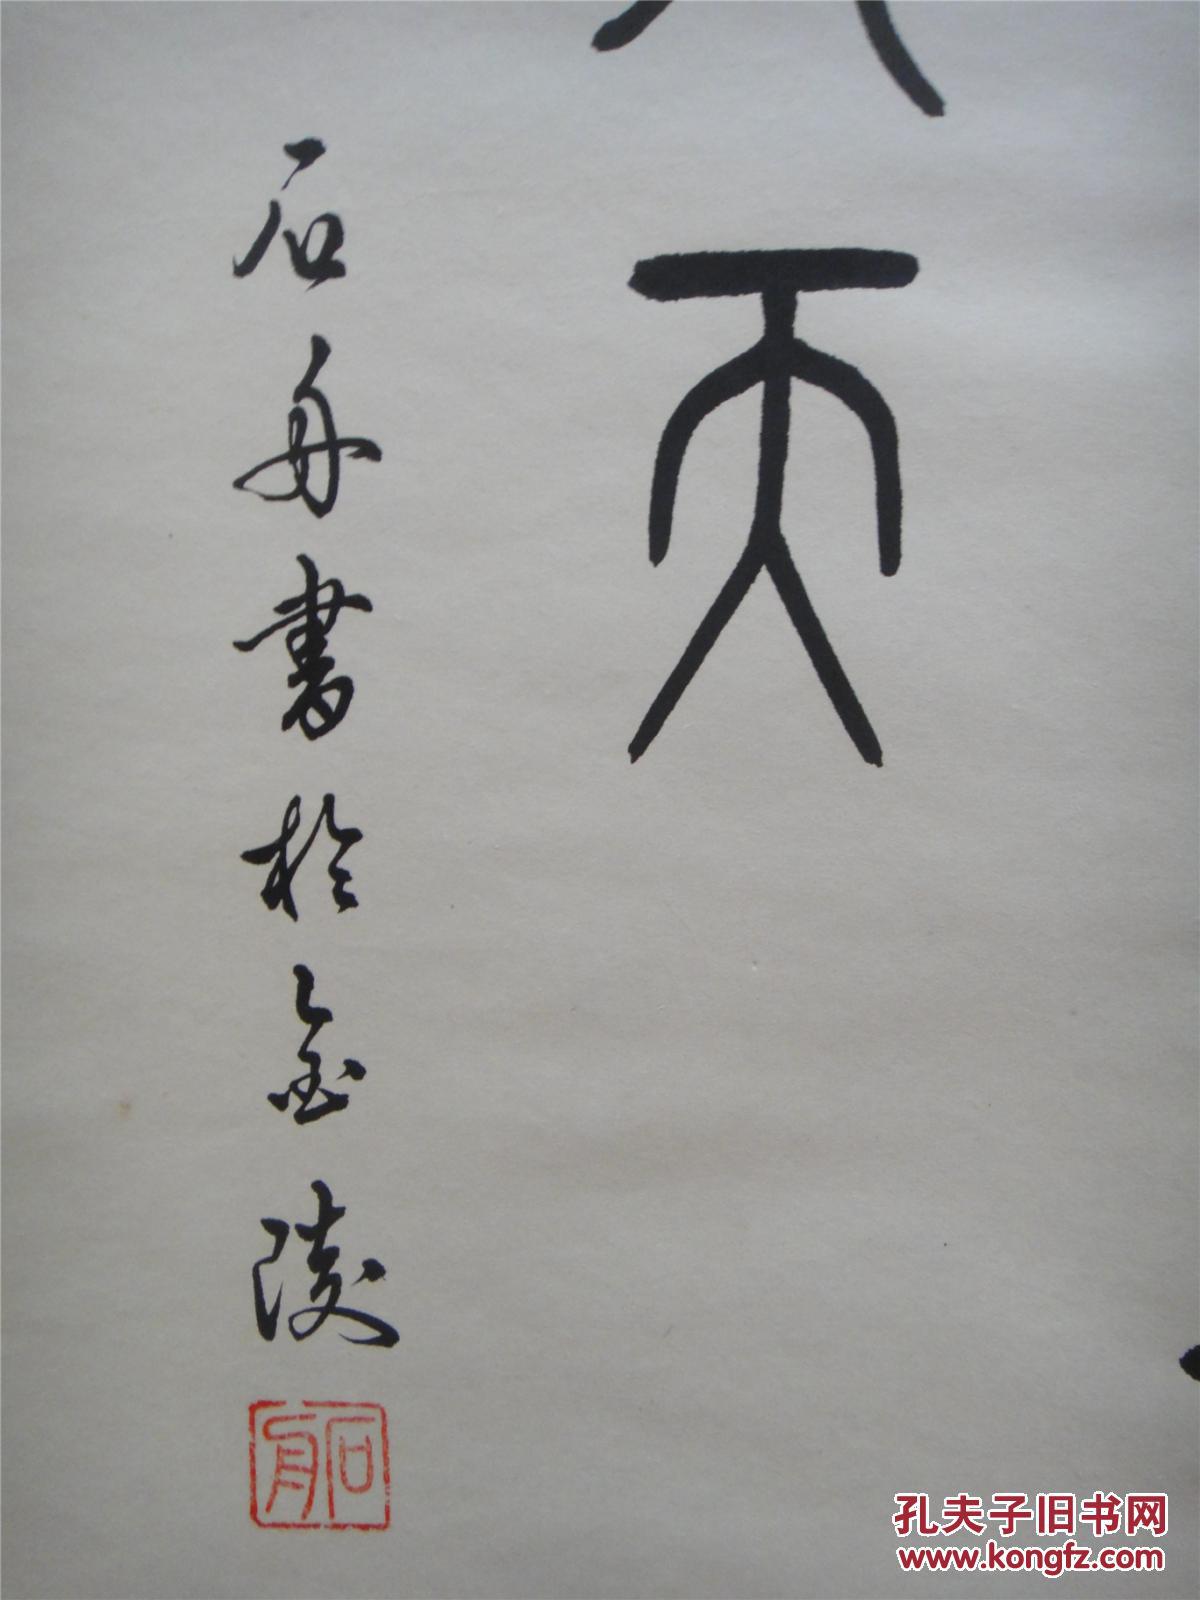 天
石舟書於金陵
石舟
孔夫子旧书网
www.kongfz.com